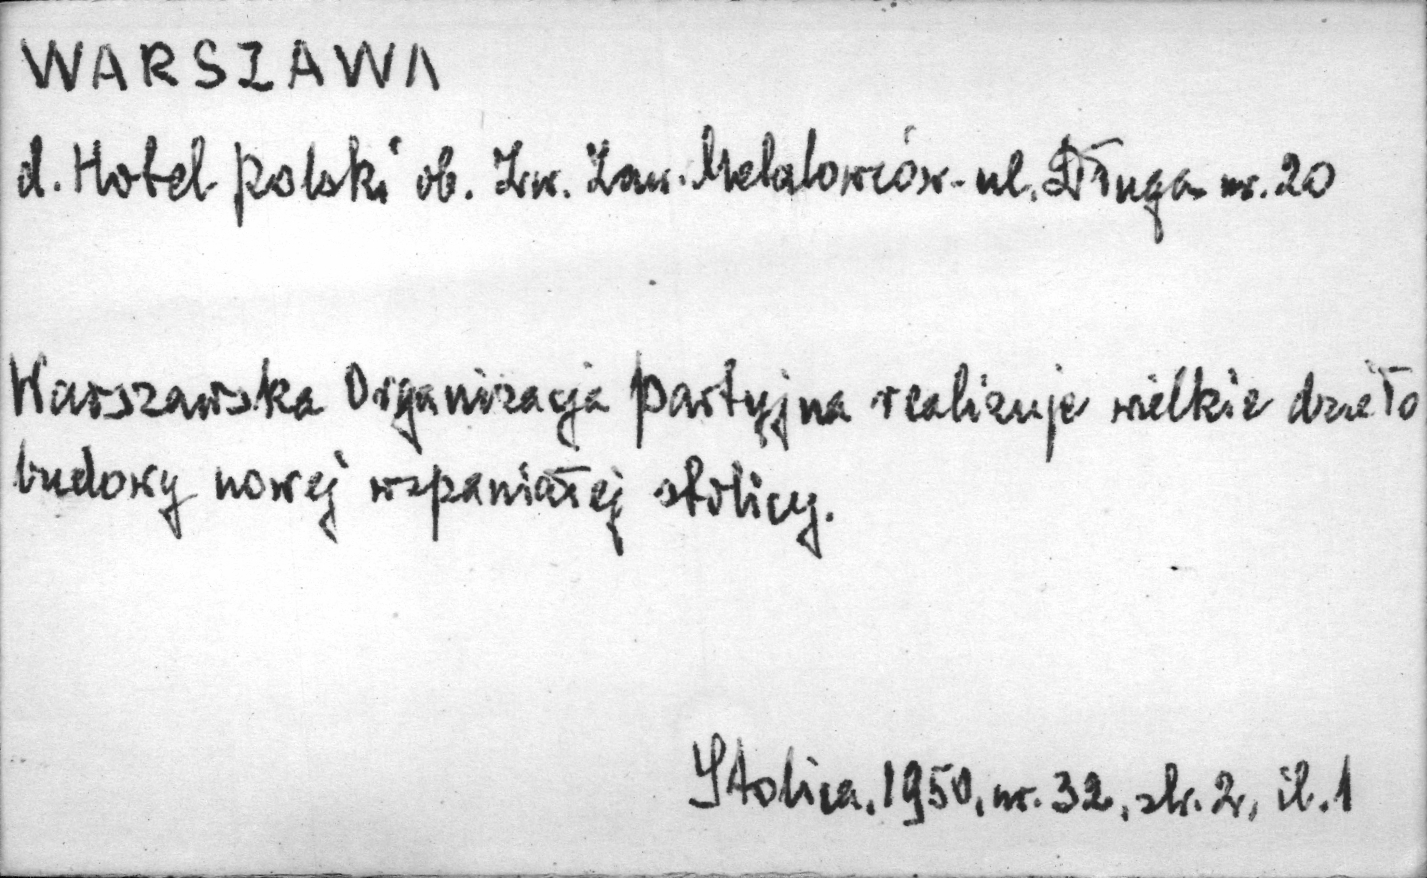 WARSZAWA
d. Hotel polski ob. Zw. Zaw. Metalowców - ul. Długa nr. 20
Warszawska Organizacja partyjna realizuje wielkie dzieło
budowy nowej wspaniałej stolicy.
Stolica, 1950, nr. 32, str. 2, il. 1